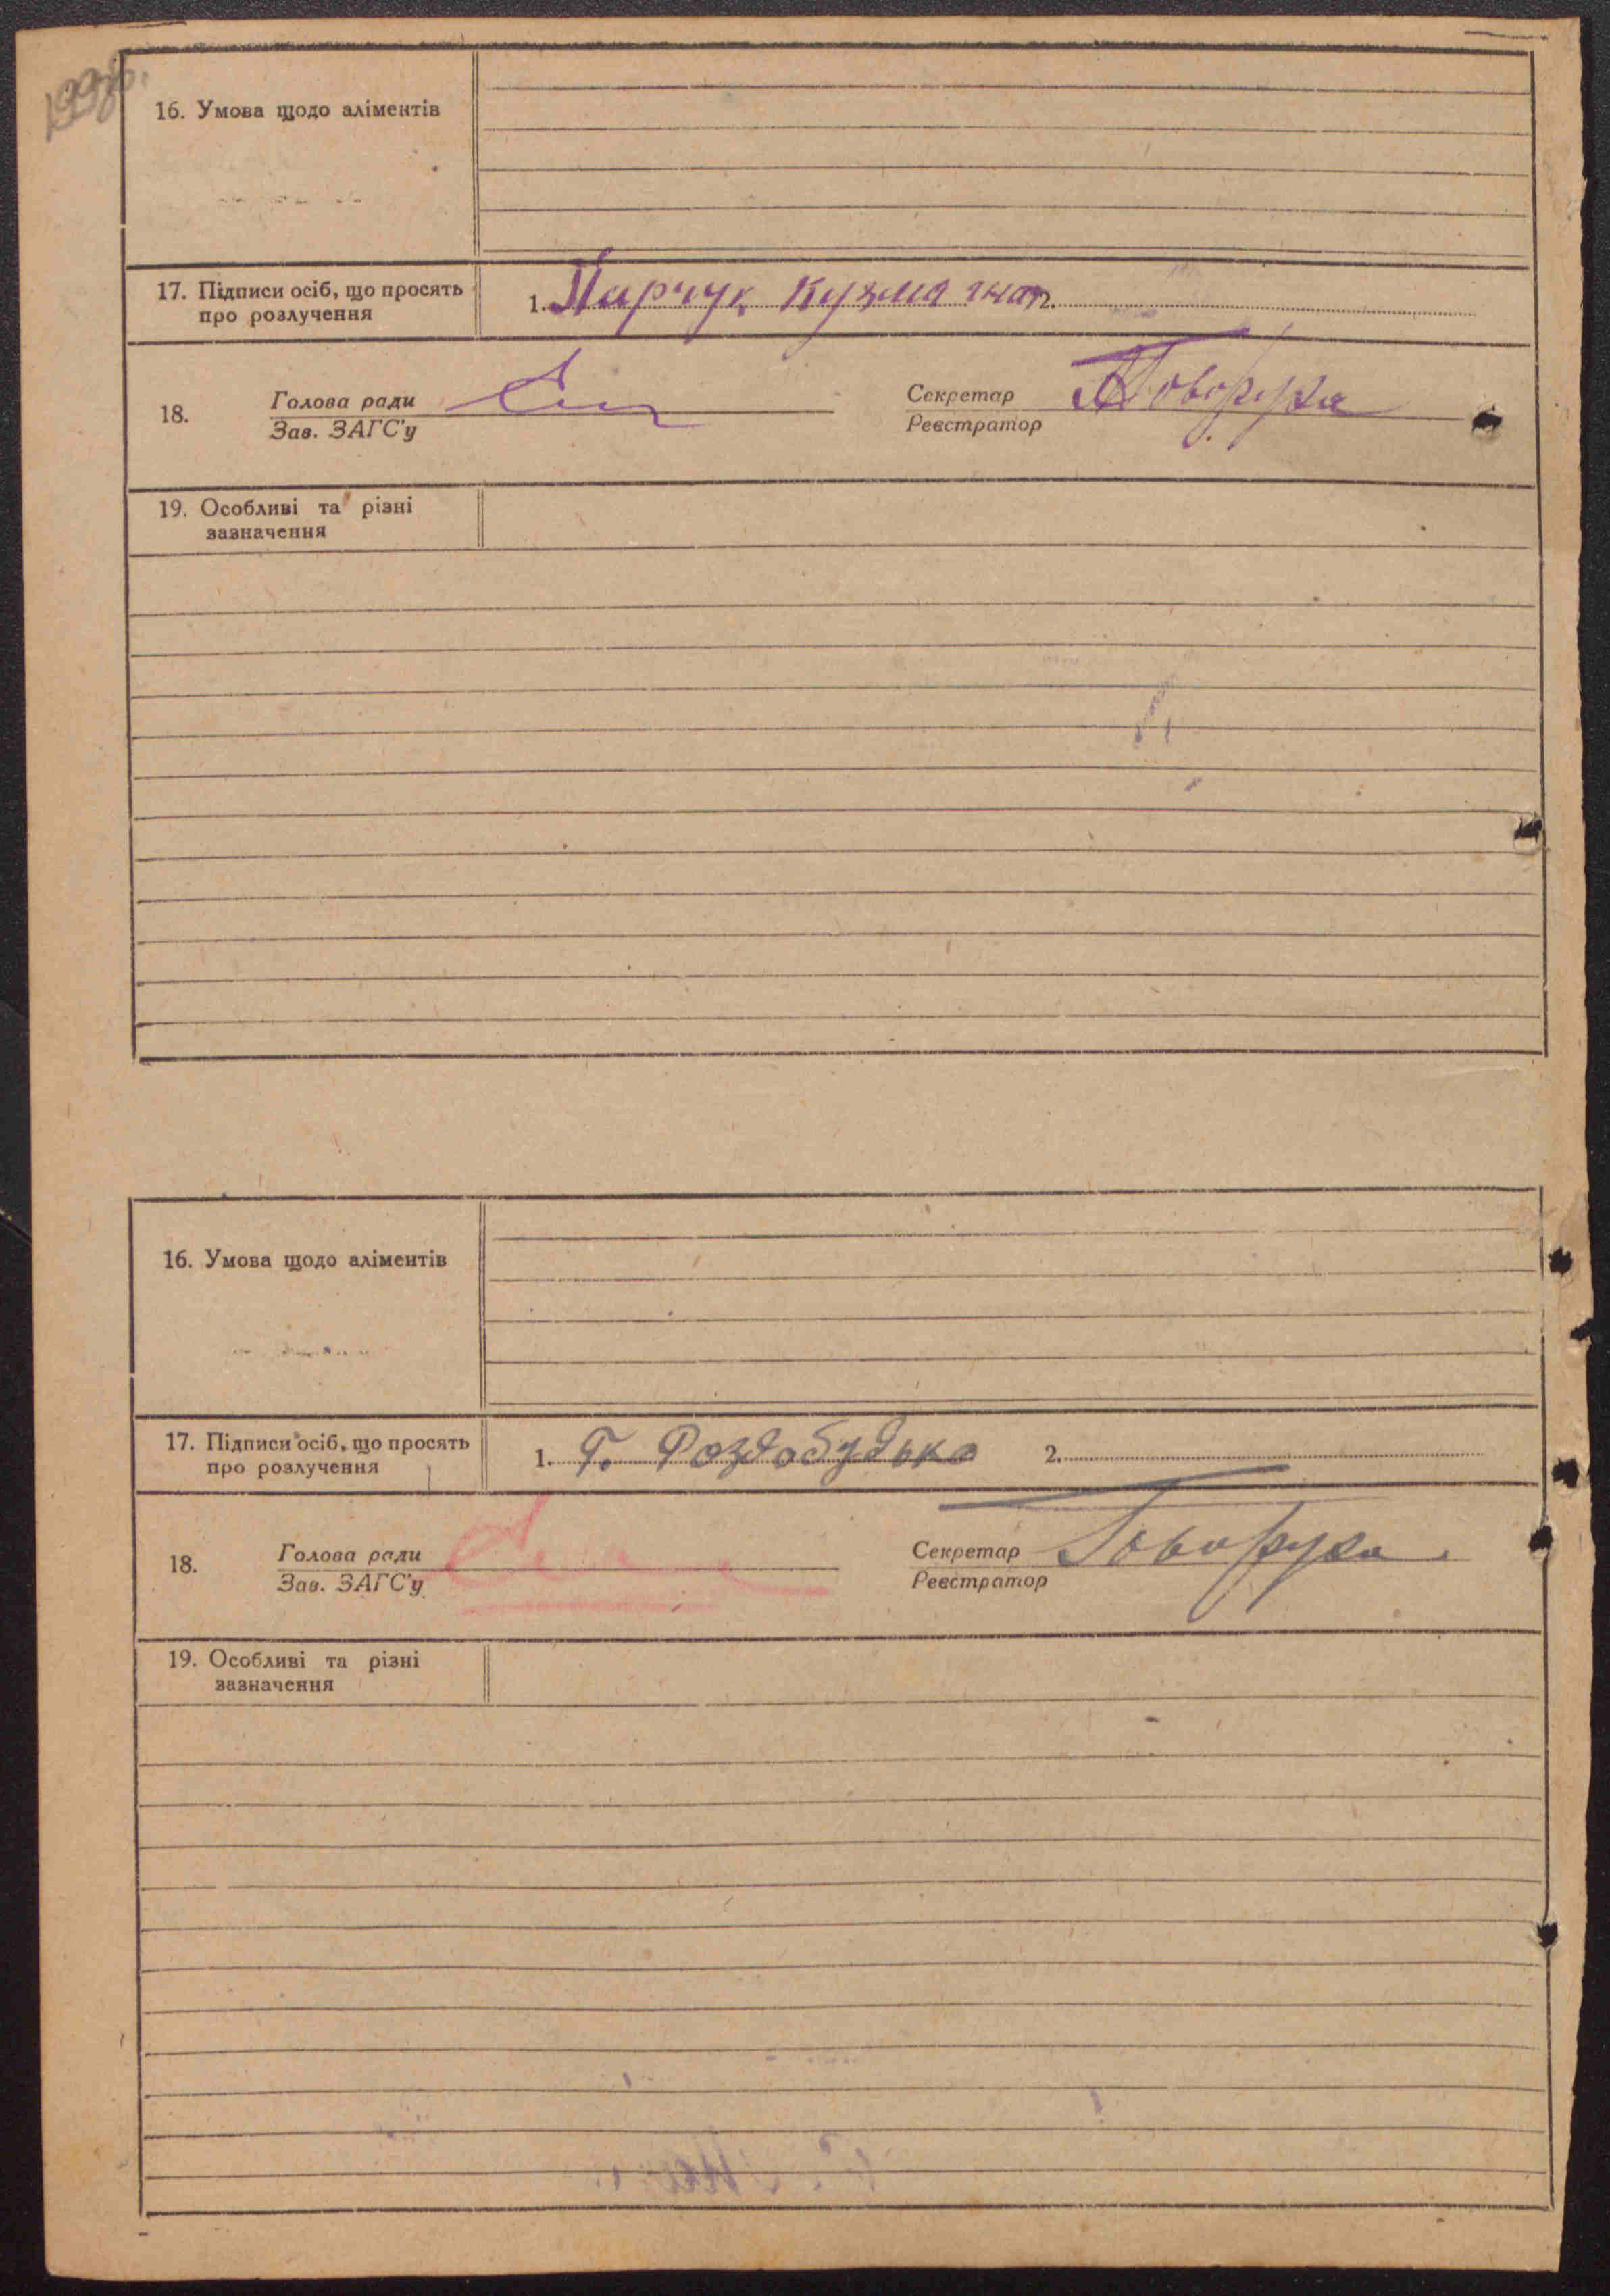 16. Умова щодо аліментів
17. Підписи осіб, що просять
про розлучення
1. Парчук Кузма гнат 2.
18.
Голова ради
Зав. ЗАГС'у
Секретар Говоруха
Реєстратор
19. Особливі та різні
зазначення
16. Умова щодо аліментів
17. Підписи осіб, що просять
про розлучення
1. Г. Роздобудько 2.
18.
Голова ради
Зав. ЗАГС'у
Секретар Говоруха
Реєстратор
19. Особливі та різні
зазначення